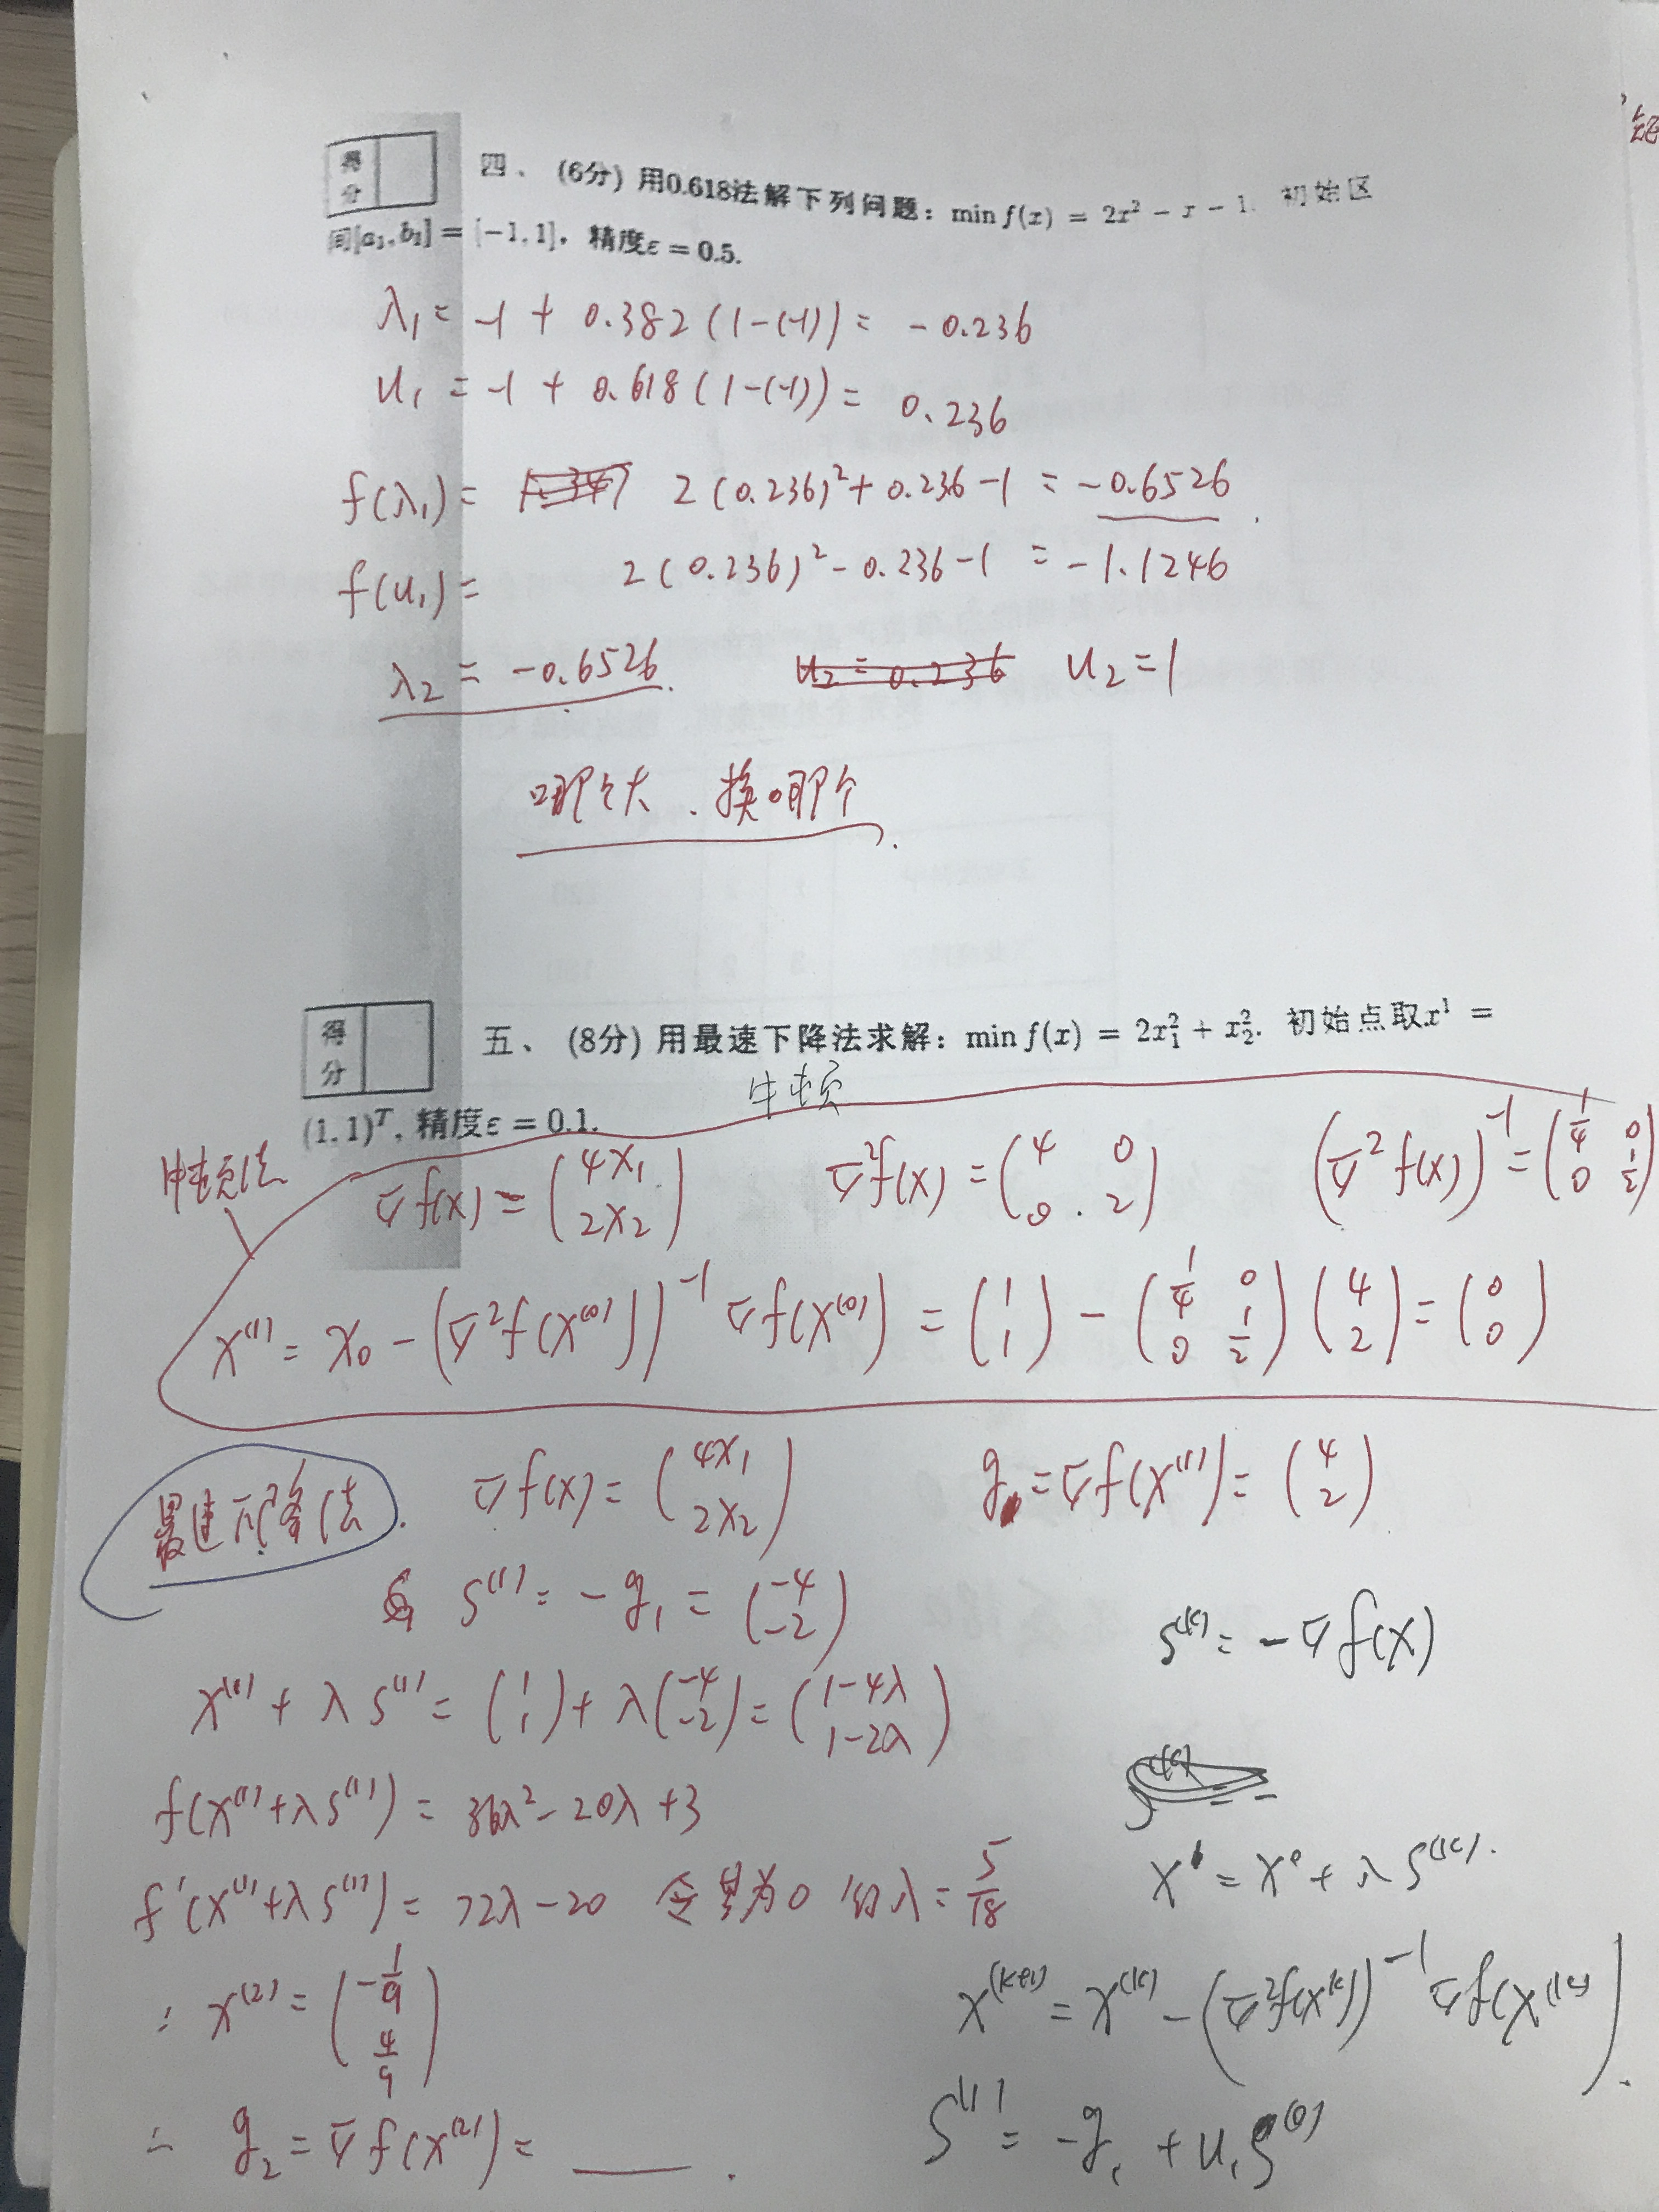 得分 四、(6分) 用0.618法解下列问题: min f(x) = 2x² − x − 1. 初始区
间[a₁, b₁] = [−1, 1], 精度ε = 0.5.
λ₁ = -1 + 0.382(1-(-1)) = -0.236
u₁ = -1 + 0.618(1-(-1)) = 0.236
f(λ₁) = 2(0.236)² + 0.236 - 1 = -0.6526.
f(u₁) = 2(0.236)² - 0.236 - 1 = -1.1246
λ₂ = -0.6526. u₂ = 0.236 u₂ = 1
哪个大、换哪个.
得分 五、(8分) 用最速下降法求解: min f(x) = 2x₁² + x₂². 初始点取x¹ =
牛顿
(1, 1)ᵀ, 精度ε = 0.1.
牛顿法
∇f(x) = (4x₁ 2x₂) ∇²f(x) = (4 0 0 2) (∇²f(x))⁻¹ = (1/4 0 0 1/2)
x⁽¹⁾ = x₀ - (∇²f(x⁽⁰⁾))⁻¹ ∇f(x⁽⁰⁾) = (1 1) - (1/4 0 0 1/2)(4 2) = (0 0)
最速下降法. ∇f(x) = (4x₁ 2x₂) g = ∇f(x⁽¹⁾) = (4 2)
S⁽¹⁾ = -g₁ = (-4 -2)
S⁽ᵏ⁾ = -∇f(x)
x⁽¹⁾ + λS⁽¹⁾ = (1 1) + λ(-4 -2) = (1-4λ 1-2λ)
f(x⁽¹⁾+λS⁽¹⁾) = 36λ² - 20λ + 3
x¹ = x⁰ + λS⁽ᵏ⁾.
f′(x⁽¹⁾+λS⁽¹⁾) = 72λ - 20 令其为0 得 λ = 5/18
x⁽ᵏ⁺¹⁾ = x⁽ᵏ⁾ - (∇²f(x⁽ᵏ⁾))⁻¹ ∇f(x⁽ᵏ⁾).
∴ x⁽²⁾ = (-1/9 4/9)
∴ g₂ = ∇f(x⁽²⁾) = ____.
S⁽¹⁾ = -g₁ + u₁S⁽⁰⁾